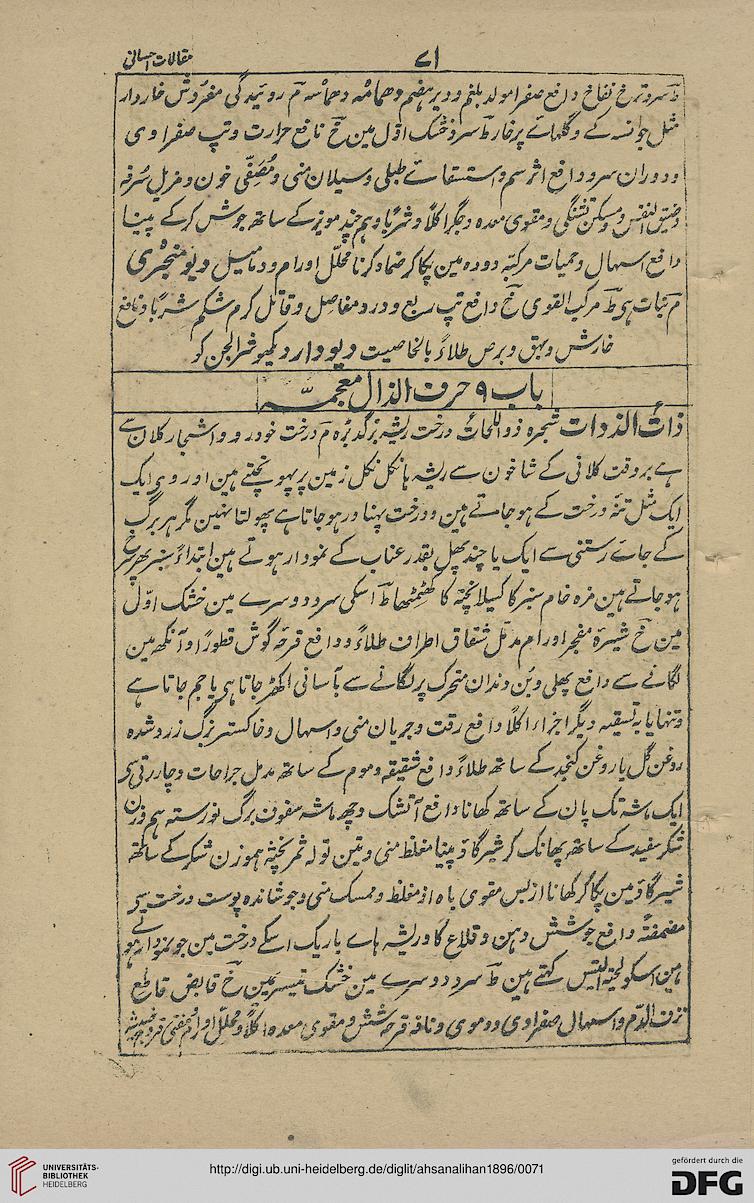 مقالات احسانی
۷۱
و سرد و ترخ نفاخ دافع صفرا مولد بلغم و دیر ہضم دھمامہ دھماسہ م روئیدگی مفروش خاردار
مثل جوانسہ کے و گلہائے پرخار ط سرد خشک اوّل مین خ نافع حرارت و تپ صفراوی
و دوران سر و دافع اثر سم و استسقائے طبلی و سیلان منی و مصفّی خون و مزیل سرفہ
و ضیق النفس و مسکن تشنگی و مقوی معدہ و جگر اکلاً و شرباً و ہم چند مویز کے ساتھ جوش کر کے پینا
دافع اسہال و حمیات مرکبہ دودہ مین پکا کر ضماد کرنا محلّل اورام و دمامیل دیو منجری
م نبات ہی ط مرکب القوی خ دافع تپ ربع و درد مفاصل و قاتل کرم شکم شرباً و نافع
خارش و بہق و برص طلاءً بالخاصیت دیودار دیکھو شجر الجن کو
باب ۹ حرف الذال معجمہ
ذات الذوات شجرہ ذو اللحات درخت ریشہ بزگد بڑہ م درخت خودرو و اشجار کلان سے
ہے بر وقت کلانی کے شاخون سے ریشہ ہا نکل نکل زمین پر پہونچتے ہین اور وہی ایک
ایک مثل تنہ درخت کے ہو جاتے ہین و درخت پہناور ہو جاتا ہے پھولتا نہین مگر ہر برگ
کے جائے رستنی سے ایک یا چند پھل بقدر عناب کے نمودار ہوتے ہین ابتداءً سبز پھر سرخ
ہو جاتے ہین مزہ خام سبز کا کسیلا پختہ کا کھٹمٹھا ط اسکی سرد دوسرے مین خشک اوّل
مین خ شیرہ مفجر اورام مدمّل شقاق اطراف طلاءً و دافع قرحہ گوش قطوراً و آنکھ مین
لگانے سے دافع پھلی و بن دندان متحرک پر لگانے سے بآسانی اکھڑ جاتا ہی یا جم جاتا ہے
و تنہا یا بہ تسقیہ دیگر اجزاء اکلاً دافع رقت و جریان منی و اسہال و خاکستر برگ زرد شدہ
روغن گل یا روغن کنجد کے ساتھ طلاءً دافع شقیقہ و موم کے ساتھ مدمل جراحات و چار رتی سے
ایک ماشہ تک پان کے ساتھ کھانا دافع آتشک و چھ ماشہ سفوف برگ نورستہ ہم وزن
شکر سفید کے ساتھ پھانک کر شیر گاؤ پینا مغلظ منی و تین تولہ ثمر پختہ ہموزن شکر کے ساتھ
شیر گاؤ مین پکا کر کھانا از بس مقوی باہ و مغلظ و ممسک منی و جوشاندہ پوست درخت سے
مضمضۃً دافع جوشش دہن و قلاع گا و ریشہ ہاے باریک اسکے درخت مین جو نمودار ہوتے
ہین اسکو لحیۃ التیس کہتے ہین ط سرد دوسرے مین خشک تیسرے مین خ قابض قاطع
نزف الدّم و اسہال صفراوی و دموی و نافہ قرحہ شش و مقوی معدہ اکلاً و محلّل اورام
UNIVERSITÄTS-
BIBLIOTHEK
HEIDELBERG
http://digi.ub.uni-heidelberg.de/diglit/ahsanalihan1896/0071
gefördert durch die
DFG